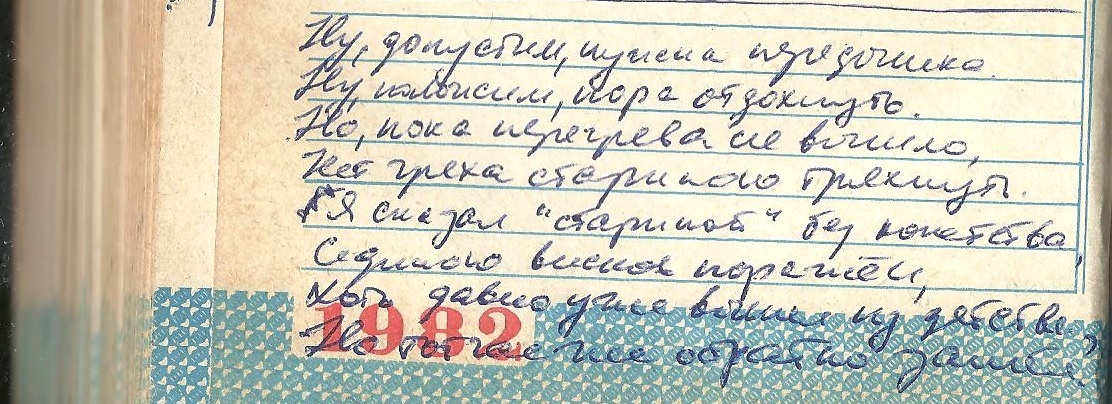 Ну, допустим, нужна передышка.
Ну, положим, пора отдохнуть.
Но, пока перегрева не вышло,
Нет греха стариною тряхнуть.
Я сказал "стариной" без кокетства,
Сединою висков поражён,
Хоть давно уже вышел из детства
Но тотчас же обратно зашёл.
1982